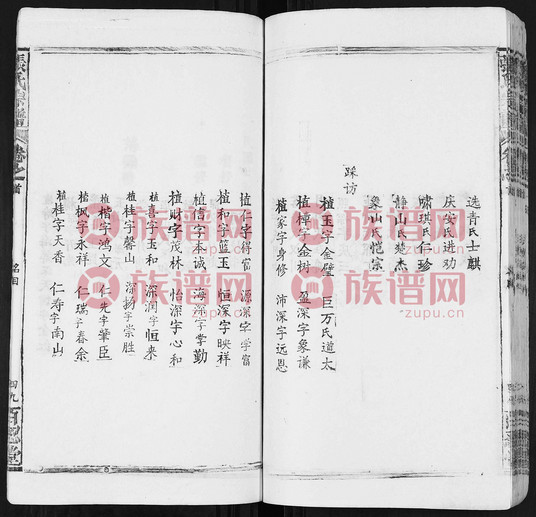 选青氏士麒
庆安氏进劝
啸琪氏仁珍
静山氏装杰
奠山氏恺宗
踩访
植玉字金璧 臣万氏道太
植樺字金树 盈深字象谦
植家字身修 沛深字远恩
植仁字得富 源深字学富
植和字蓝玉 恒深字映祥
植信字泰诚 海深字掌勤
植财字茂林 怡深字心和
植喜字玉和 深润字恒来
植桂字馨山 深扬字崇胜
植楷字鸿文 仁先字肇臣
植枫字永祥 仁瑞字春余
植桂字天香 仁寿字南山
张氏宗谱
卷首
名目
四九
百忍堂
族谱网
www.zupu.cn
族谱网
zupu.cn
族谱网
www.zupu.cn
族谱网
zupu.cn